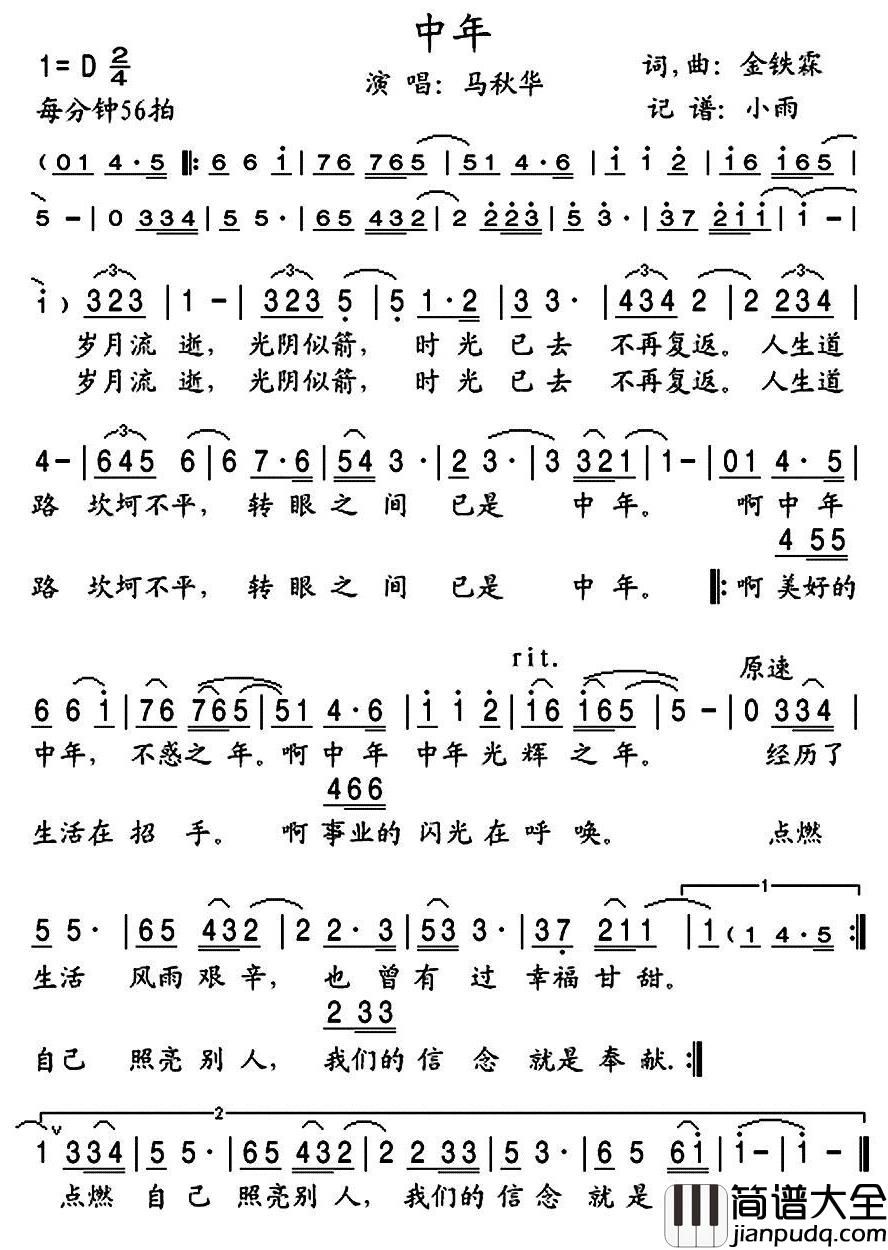 中年
1=D 2/4
演唱：马秋华
词,曲：金铁霖
每分钟56拍
记谱：小雨
(01 4·5 ‖: 6 6 i | 76 765 | 51 4·6 | i i 2 | i6 i65 |
5 - | 0 334 | 5 5· | 65 432 | 2 223 | 5 3· | 37 2ii | i - |
i) 323 | 1 - | 323 5 | 5 1·2 | 3 3· | 434 2 | 2 234 |
岁月流逝，光阴似箭，时光已去不再复返。人生道
岁月流逝，光阴似箭，时光已去不再复返。人生道
4 - | 645 6 | 6 7·6 | 54 3· | 2 3· | 3 321 | 1 - | 01 4·5 |
路坎坷不平，转眼之间已是中年。啊中年
4 55
路坎坷不平，转眼之间已是中年。‖:啊美好的
rit. 原速
6 6 i | 76 765 | 51 4·6 | i i 2 | i6 i65 | 5 - | 0 334 |
中年，不惑之年。啊中年中年光辉之年。经历了
466
生活在招手。啊事业的闪光在呼唤。点燃
1
5 5· | 65 432 | 2 2·3 | 53 3· | 37 211 | 1 (1 4·5 :‖
生活风雨艰辛，也曾有过幸福甘甜。
2 33
自己照亮别人，我们的信念就是奉献.:‖
2
1 v 334 | 5 5· | 65 432 | 2 2 33 | 5 3· | 6 5 6i | i - | i - ‖
点燃自己照亮别人，我们的信念就是
简谱大全
jianpudq.com